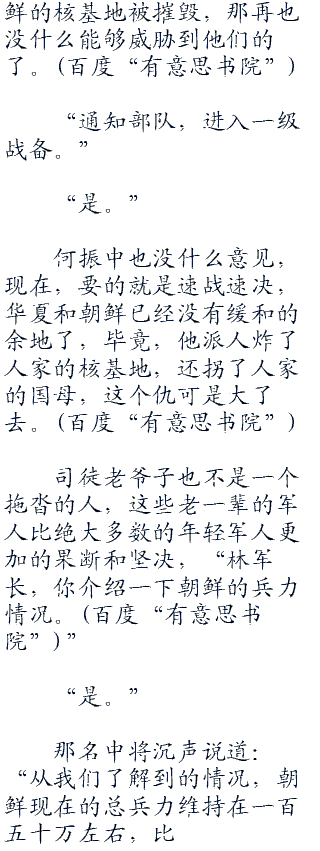 鲜的核基地被摧毁，那再也
没什么能够威胁到他们的
了。(百度“有意思书院”)
“通知部队，进入一级
战备。”
“是。”
何振中也没什么意见，
现在，要的就是速战速决，
华夏和朝鲜已经没有缓和的
余地了，毕竟，他派人炸了
人家的核基地，还拐了人家
的国母，这个仇可是大了
去。(百度“有意思书院”)
司徒老爷子也不是一个
拖沓的人，这些老一辈的军
人比绝大多数的年轻军人更
加的果断和坚决，“林军
长，你介绍一下朝鲜的兵力
情况。(百度“有意思书
院”)”
“是。”
那名中将沉声说道：
“从我们了解到的情况，朝
鲜现在的总兵力维持在一百
五十万左右，比